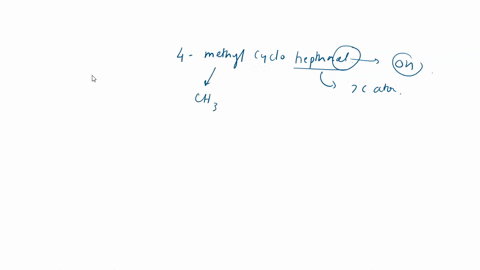 4 - methyl cyclo heptanol → OH
CH3
7C ator.